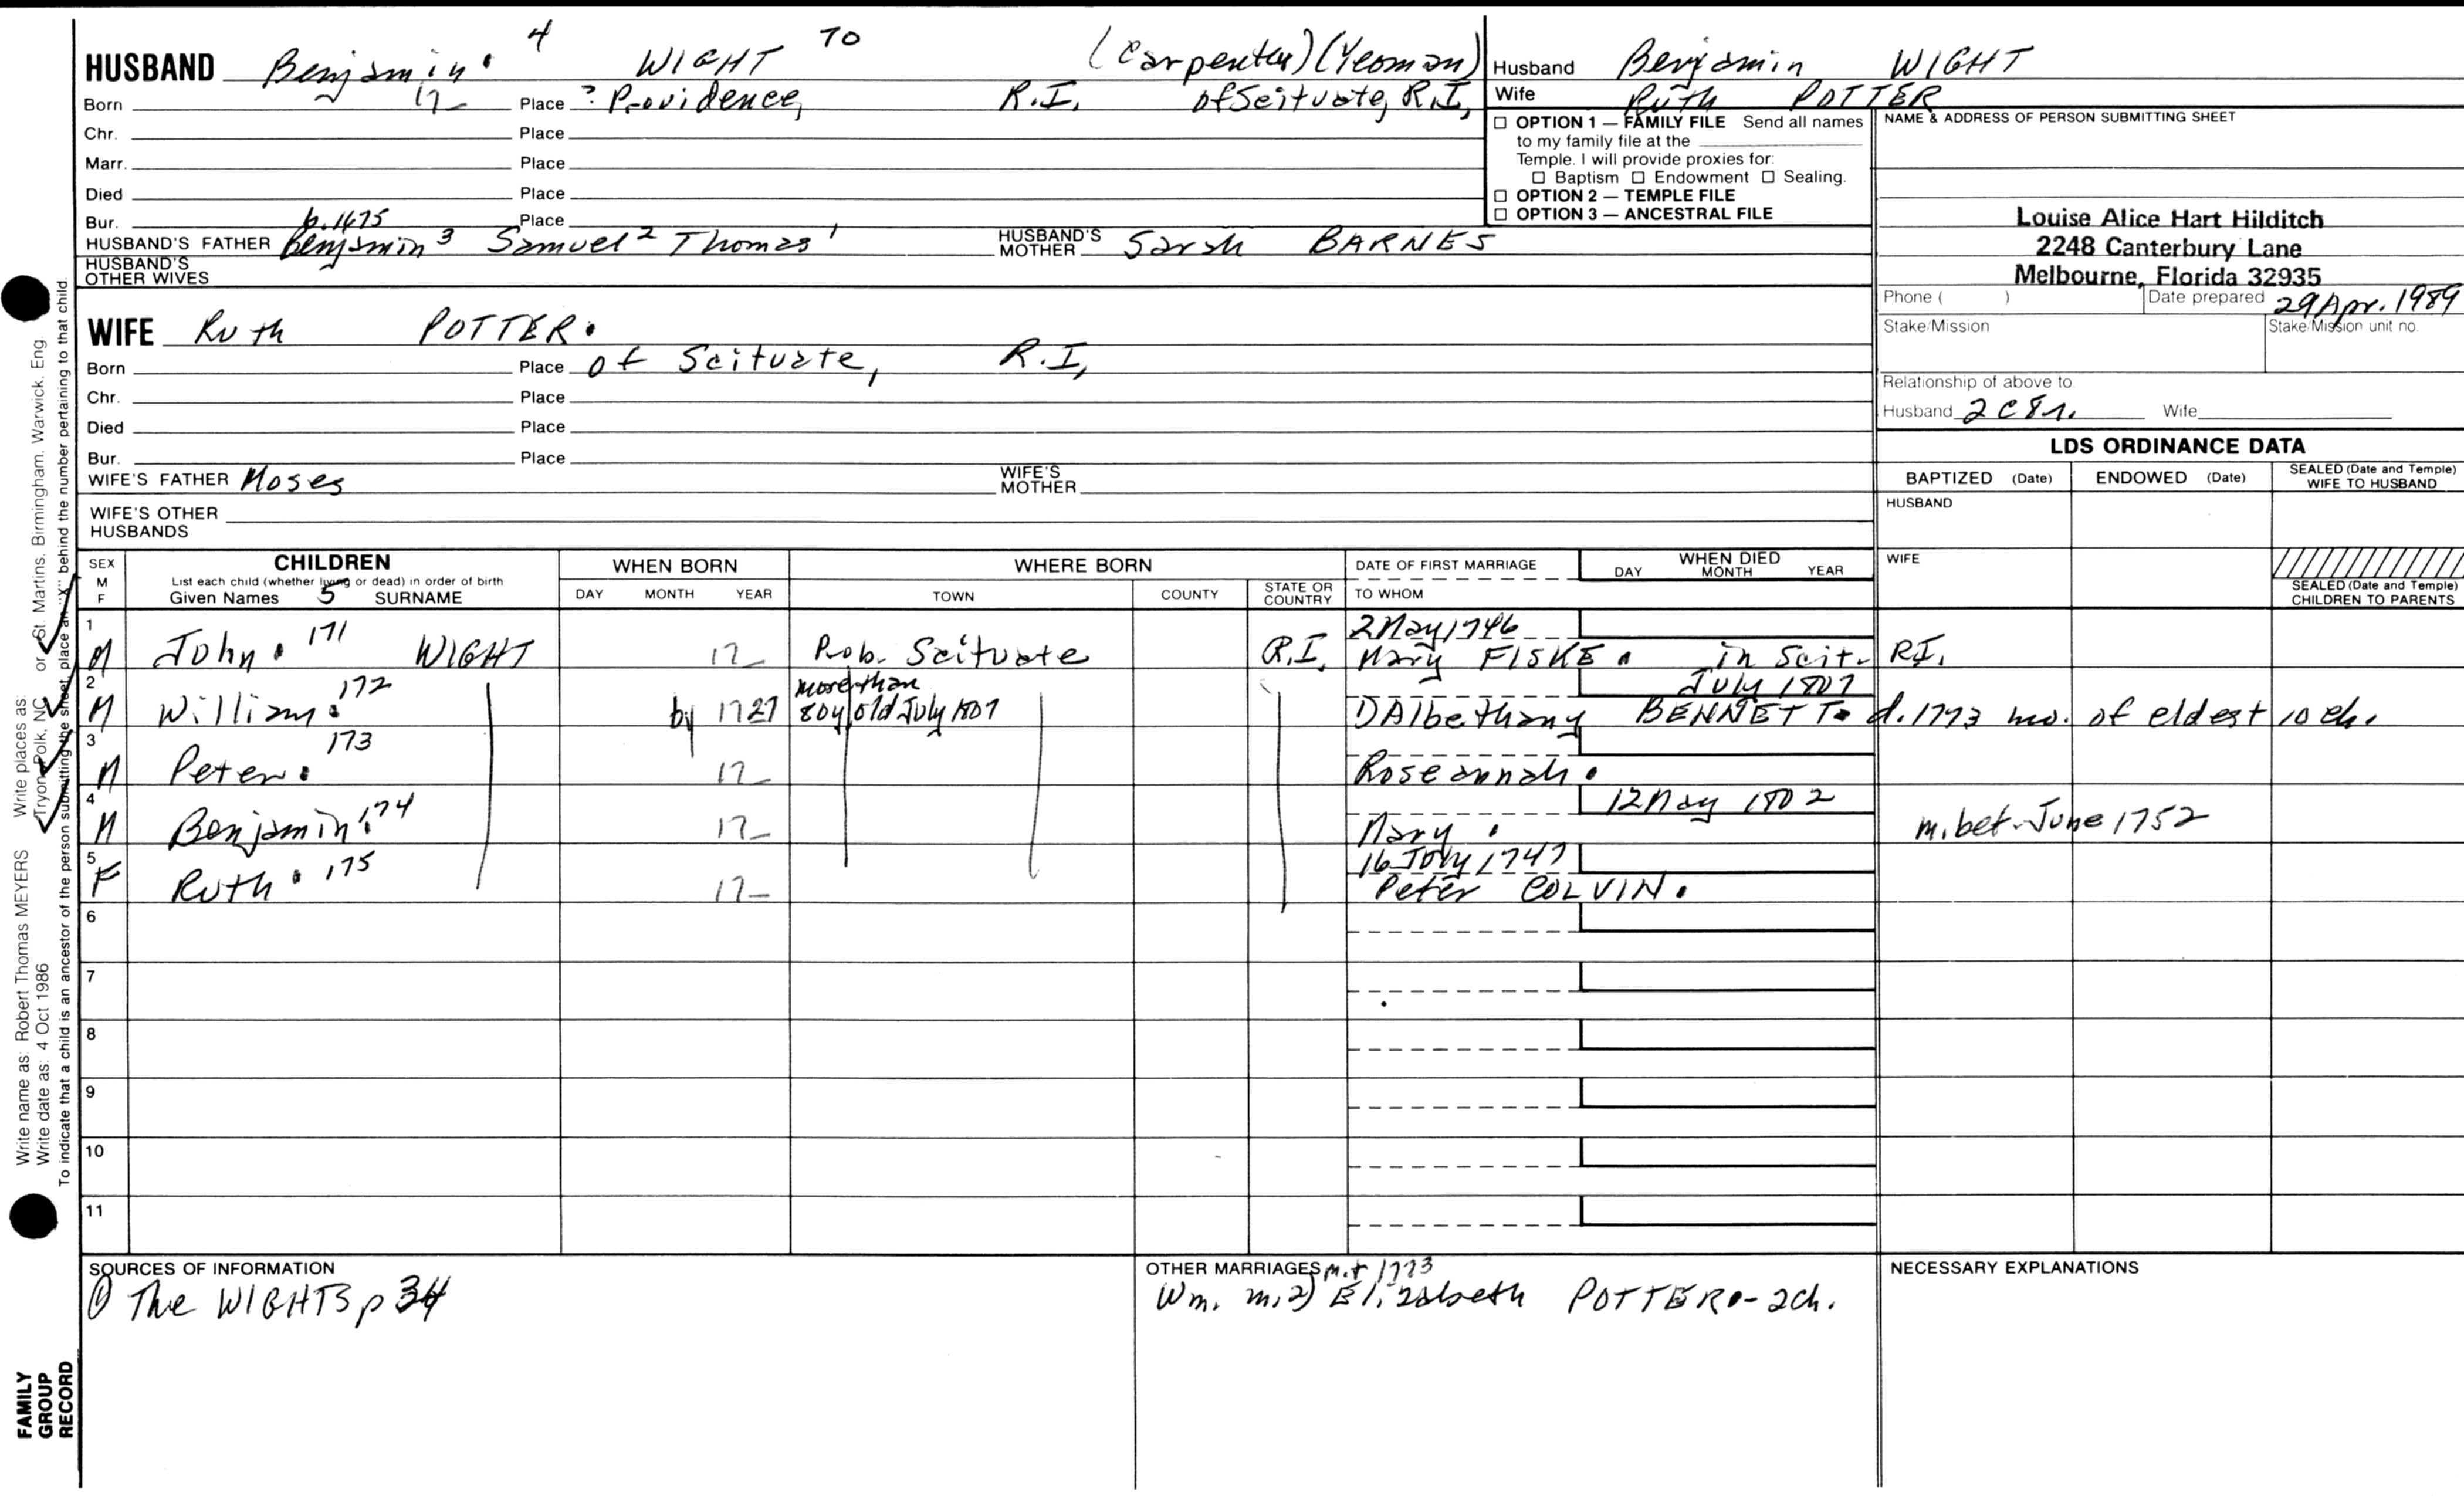 HUSBAND Benjamin 4 WIGHT 70 (Carpenter) (Yeoman)
Born 17_ Place ? Providence, R.I. of Scituate, R.I.
Chr. Place
Marr. Place
Died Place
Bur. Place
b. 1675
HUSBAND'S FATHER Benjamin 3 Samuel 2 Thomas 1 HUSBAND'S MOTHER Sarah BARNES
HUSBAND'S OTHER WIVES
WIFE Ruth POTTER.
Born Place of Scituate, R.I.
Chr. Place
Died Place
Bur. Place
WIFE'S FATHER Moses WIFE'S MOTHER
WIFE'S OTHER HUSBANDS
Husband Benjamin WIGHT
Wife Ruth POTTER
☐ OPTION 1 — FAMILY FILE Send all names
to my family file at the
Temple. I will provide proxies for:
☐ Baptism ☐ Endowment ☐ Sealing.
☐ OPTION 2 — TEMPLE FILE
☐ OPTION 3 — ANCESTRAL FILE
NAME & ADDRESS OF PERSON SUBMITTING SHEET
Louise Alice Hart Hilditch
2248 Canterbury Lane
Melbourne, Florida 32935
Phone ( ) Date prepared 29 Apr. 1989
Stake/Mission Stake/Mission unit no.
Relationship of above to
Husband 2C8r. Wife
LDS ORDINANCE DATA
BAPTIZED (Date) ENDOWED (Date) SEALED (Date and Temple) WIFE TO HUSBAND
HUSBAND
WIFE
SEALED (Date and Temple)
CHILDREN TO PARENTS
SEX M F CHILDREN WHEN BORN WHERE BORN DATE OF FIRST MARRIAGE WHEN DIED
List each child (whether living or dead) in order of birth
Given Names 5 SURNAME DAY MONTH YEAR TOWN COUNTY STATE OR COUNTRY TO WHOM DAY MONTH YEAR
1 2 May 1746
M John. 171 WIGHT 17_ Prob. Scituate R.I. Mary FISKE. in Scit. RI.
2 more than July 1807
M William. 172 by 1727 80y old July 1807 DAlbethany BENNETT. d. 1773 mo. of eldest 10 ch.
3
M Peter. 173 17_ Roseannah.
4 12 May 1802
M Benjamin. 174 17_ Mary. m. bet. June 1752
5 16 July 1747
F Ruth. 175 17_ Peter COLVIN.
6
7
8
9
10
11
SOURCES OF INFORMATION
① The WIGHTS p 34
OTHER MARRIAGES
Wm. m. 2) Elizabeth POTTER. - 2ch.
NECESSARY EXPLANATIONS
Write name as: Robert Thomas MEYERS Write places as: Tryon, Polk, NC or St. Martins, Birmingham, Warwick, Eng
Write date as: 4 Oct 1986
To indicate that a child is an ancestor of the person submitting the sheet, place an "X" behind the number pertaining to that child.
FAMILY
GROUP
RECORD